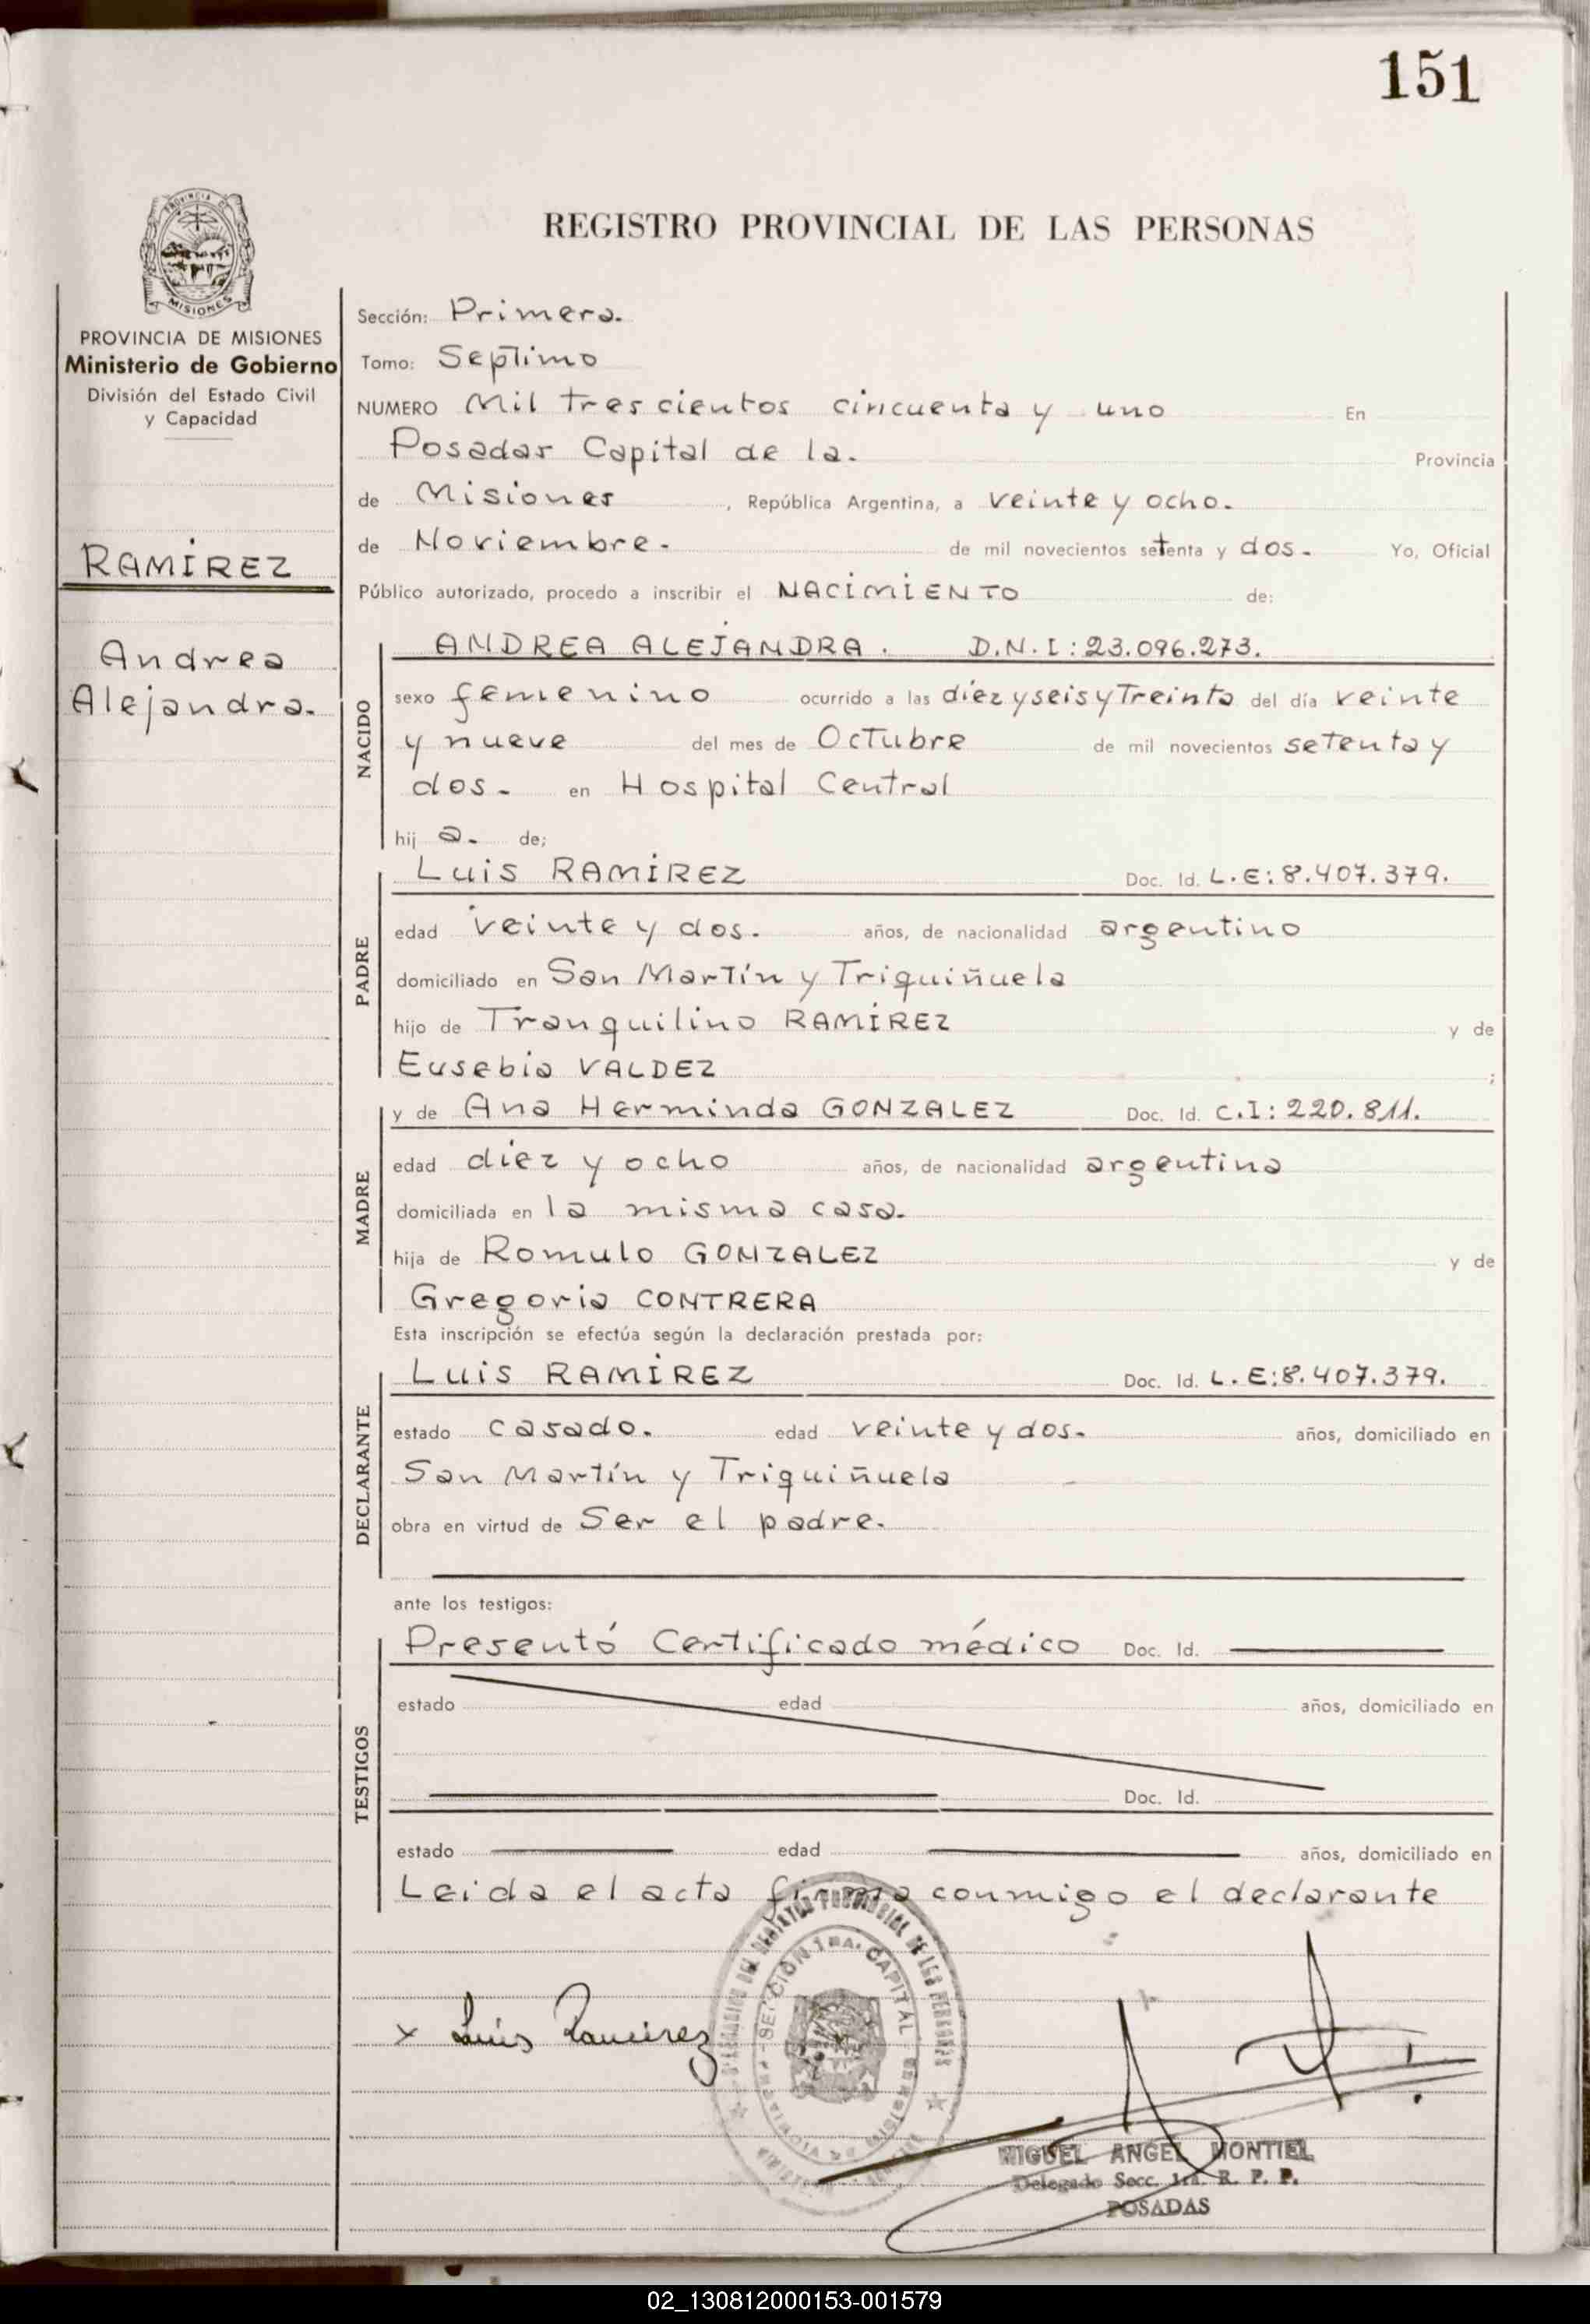 151
PROVINCIA DE MISIONES
Ministerio de Gobierno
División del Estado Civil
y Capacidad
RAMÍREZ
Andrea
Alejandra.
REGISTRO PROVINCIAL DE LAS PERSONAS
Sección: Primera.
Tomo: Septimo
NUMERO Mil trescientos cincuenta y uno En
Posadas Capital de la. Provincia
de Misiones, República Argentina, a veinte y ocho.
de Noviembre. de mil novecientos setenta y dos. Yo, Oficial
Público autorizado, procedo a inscribir el NACIMIENTO de:
NACIDO
ANDREA ALEJANDRA. D.N.I: 23.096.273.
sexo femenino ocurrido a las diez y seis y Treinta del día veinte
y nueve del mes de Octubre de mil novecientos setenta y
dos. en Hospital Central
hij a. de;
PADRE
Luis RAMÍREZ Doc. Id. L.E: 8.407.379.
edad veinte y dos. años, de nacionalidad argentino
domiciliado en San Martín y Triquiñuela
hijo de Tranquilino RAMÍREZ y de
Eusebia VALDEZ ;
MADRE
y de Ana Herminda GONZALEZ Doc. Id. C.I: 220.811.
edad diez y ocho años, de nacionalidad argentina
domiciliada en la misma casa.
hija de Romulo GONZALEZ y de
Gregoria CONTRERA
Esta inscripción se efectúa según la declaración prestada por:
DECLARANTE
Luis RAMÍREZ Doc. Id. L.E: 8.407.379.
estado casado. edad veinte y dos. años, domiciliado en
San Martín y Triquiñuela
obra en virtud de Ser el padre.
ante los testigos:
TESTIGOS
Presentó Certificado médico Doc. Id.
estado edad años, domiciliado en
Doc. Id.
estado edad años, domiciliado en
Leida el acta firma conmigo el declarante
x Luis Ramirez
SECCIÓN 1RA. CAPITAL
MIGUEL ANGEL MONTIEL
Delegado Secc. 1ra. R. P. P.
POSADAS
02_130812000153-001579